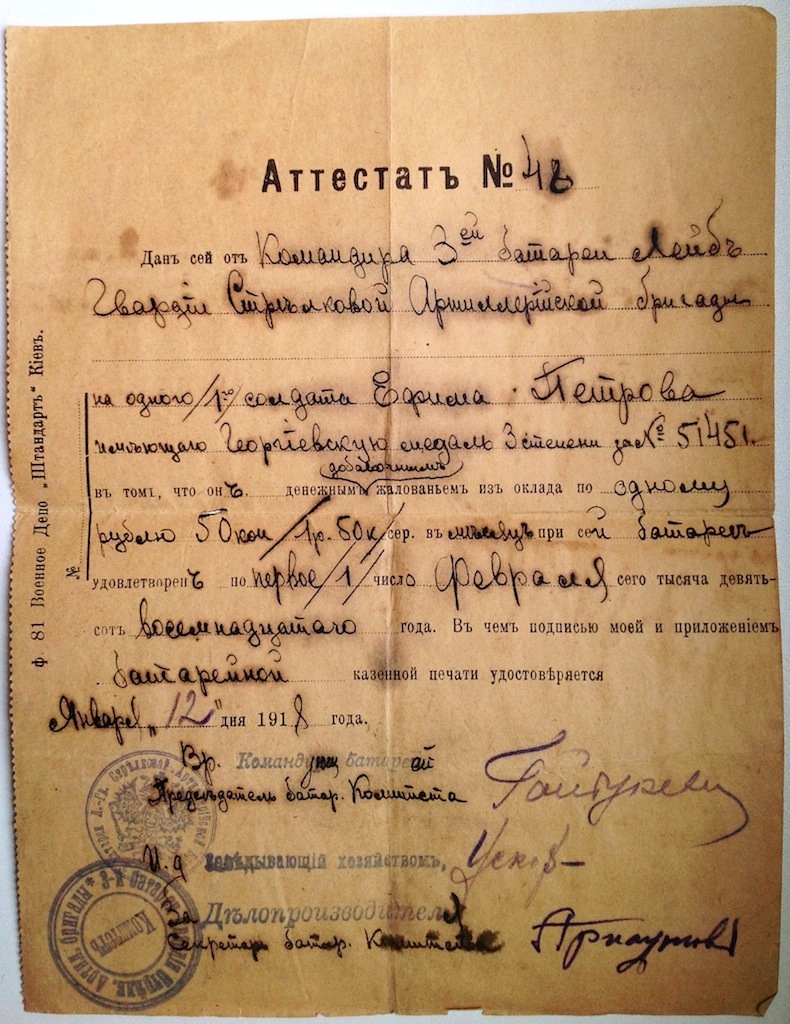 Аттестатъ № 48
Данъ сей отъ Командира 3ей батареи Лейбъ
Гвардіи Стрѣлковой Артиллерійской бригады
на одного /1го/ солдата Ефима Петрова
имѣющаго Георгіевскую медаль 3 степени за № 51451.
добавочнымъ
въ томъ, что онъ денежнымъ жалованьемъ изъ оклада по одному
рублю 50 коп /1р. 50к/ сер. въ мѣсяцъ при сей батареѣ
удовлетворенъ по первое /1/ число Февраля сего тысяча девять-
сотъ восемнадцатаго года. Въ чемъ подписью моей и приложеніемъ
батарейной казенной печати удостовѣряется
Января „12" дня 1918 года.
Вр. Командующій батареей
Предсѣдатель батар. Комитета
И.д Завѣдывающій хозяйствомъ,
За Дѣлопроизводителя
Секретарь батар. Комитета Арнаутовъ
№
ф. 81 Военное Депо „Штандартъ" Кіевъ.
Комитетъ